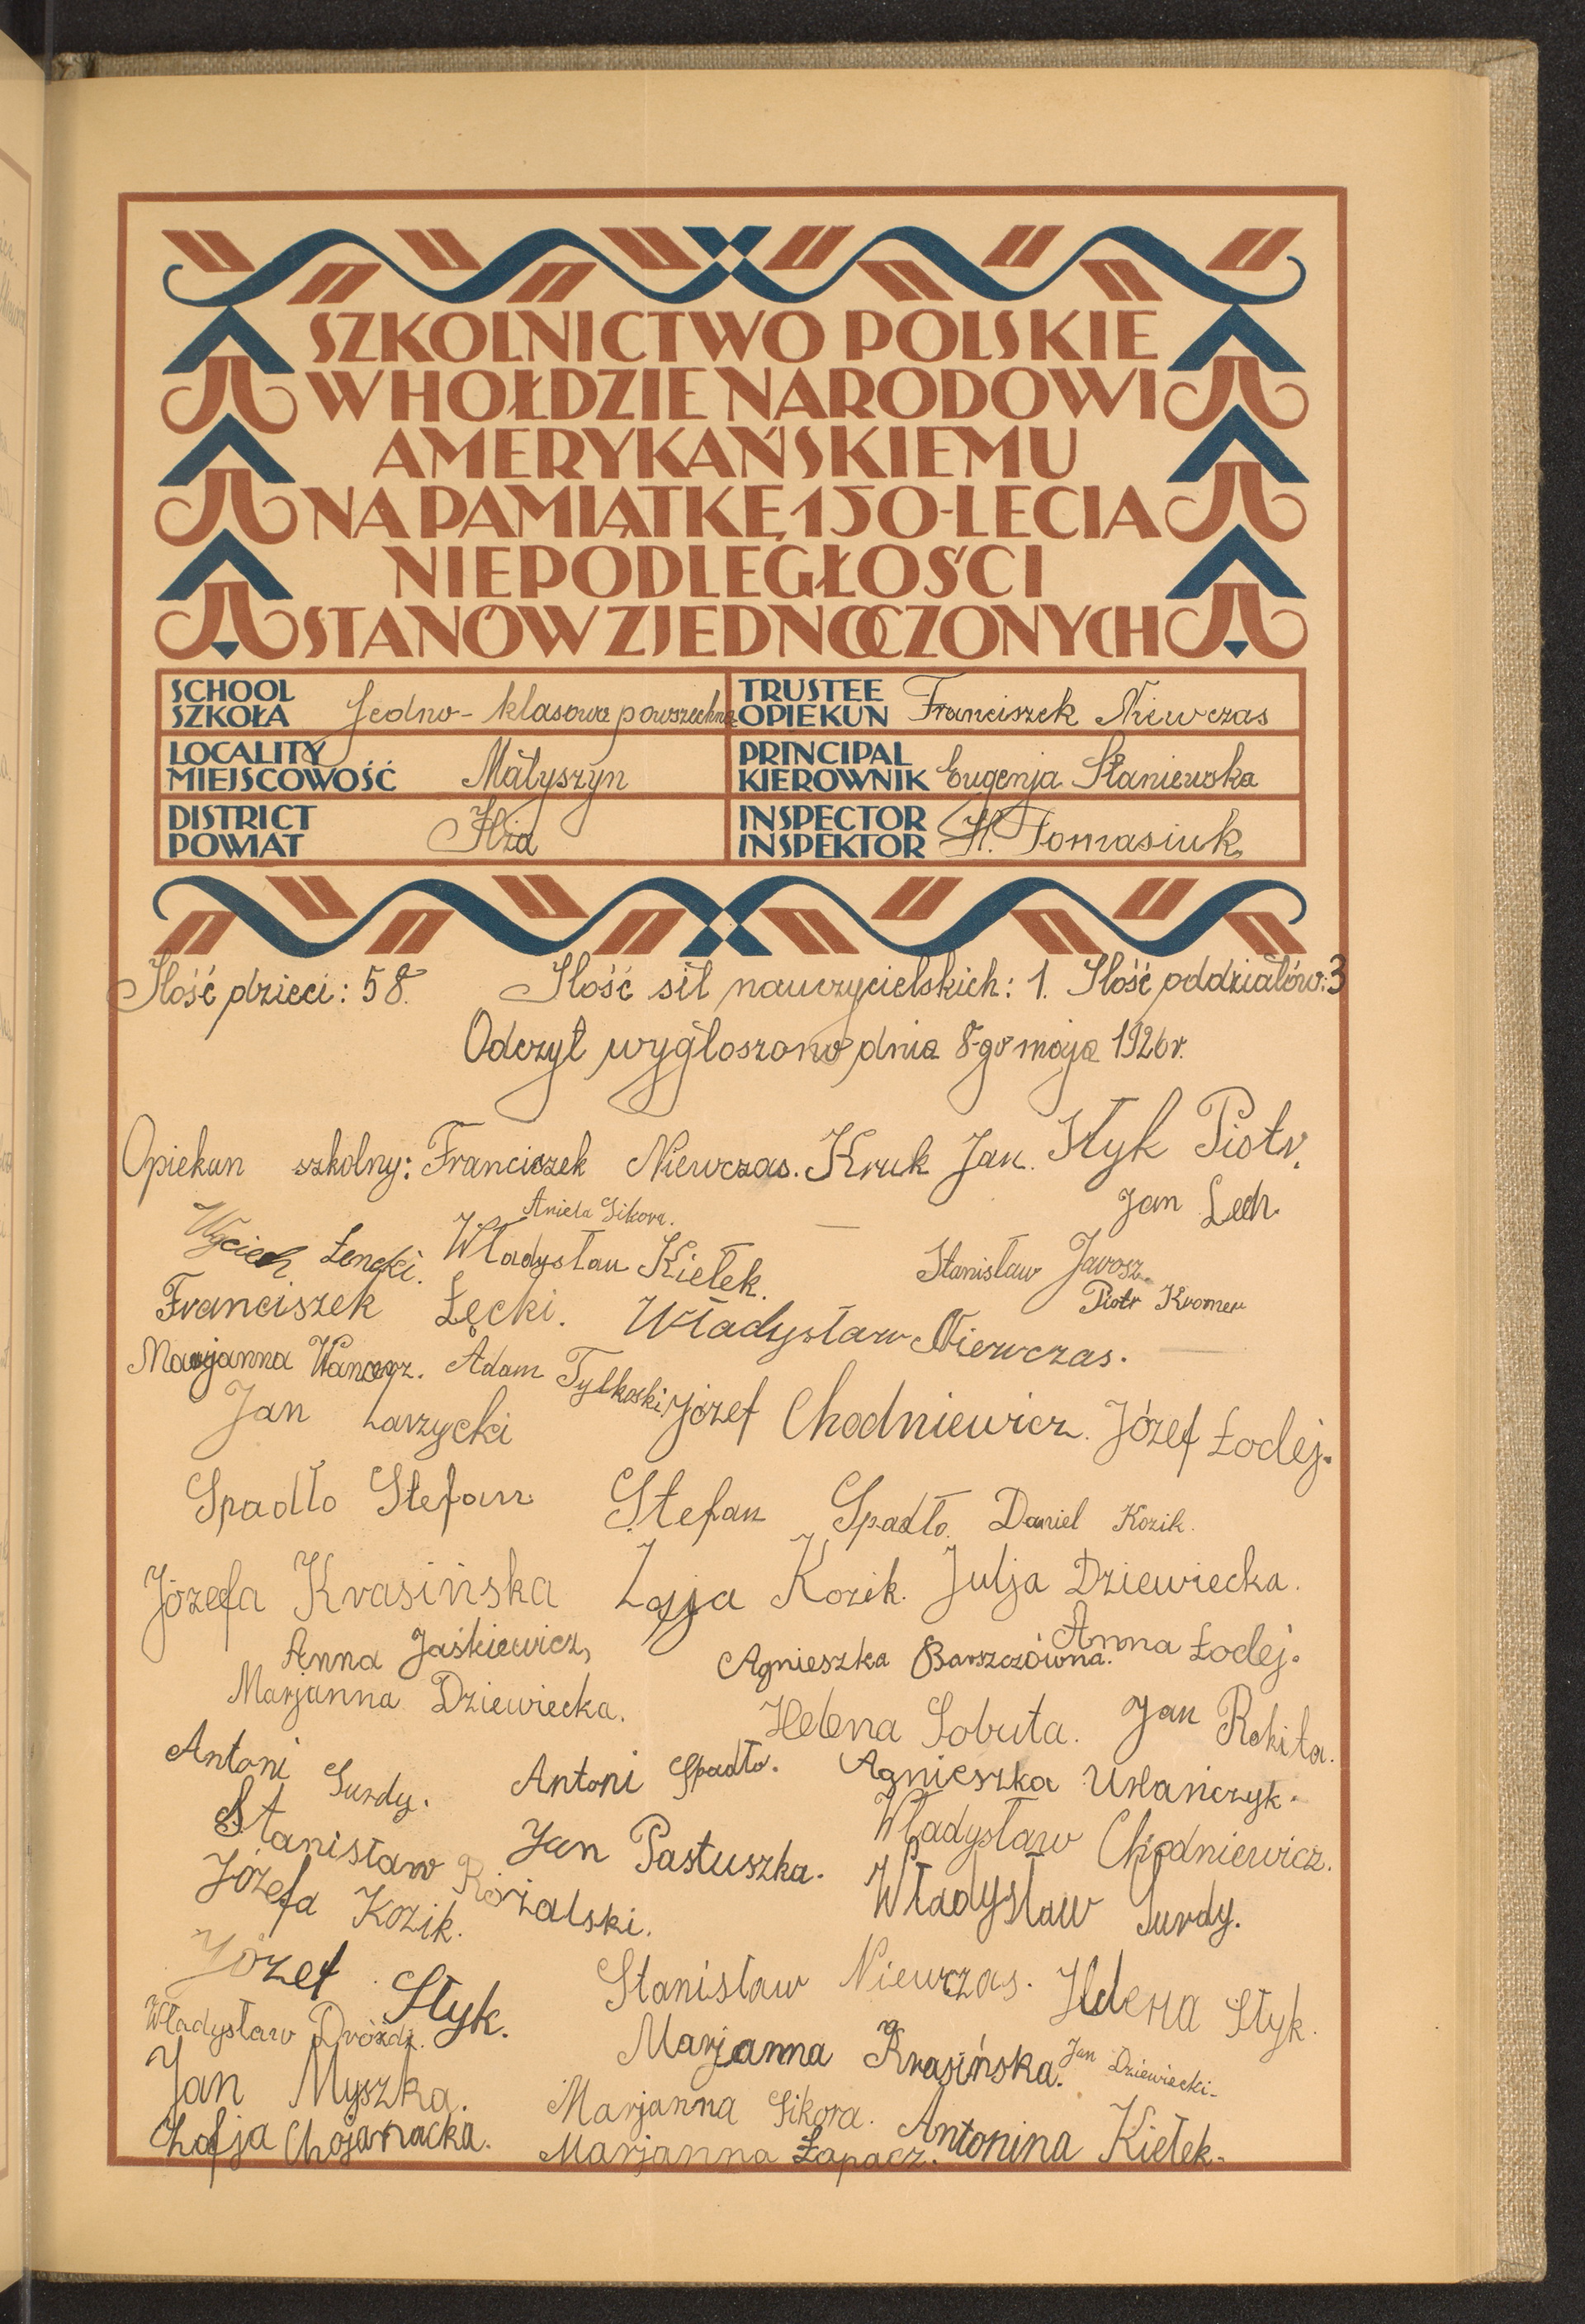 SZKOLNICTWO POLSKIE
W HOŁDZIE NARODOWI
AMERYKAŃSKIEMU
NA PAMIĄTKĘ 150-LECIA
NIEPODLEGŁOŚCI
STANÓW ZJEDNOCZONYCH
SCHOOL SZKOŁA Jedno-klasowa powszechna
TRUSTEE OPIEKUN Franciszek Niewczas
LOCALITY MIEJSCOWOŚĆ Małyszyn
PRINCIPAL KIEROWNIK Eugenja Staniewska
DISTRICT POWIAT Iłża
INSPECTOR INSPEKTOR H. Tomasiuk
Ilość dzieci: 58. Ilość sił nauczycielskich: 1. Ilość oddziałów: 3
Odczyt wygłoszono dnia 8-go maja 1926 r.
Opiekun szkolny: Franciszek Niewczas. Kruk Jan. Styk Piotr.
Aniela Sikora. Jan Lech.
Łencki. Władysław Kiełek. Stanisław Jarosz.
Piotr Kromer
Franciszek Łęcki. Władysław Niewczas.
Marjanna Adam Tylkoski. Józef Chodniewicz. Józef Łodej.
Jan Zarzycki
Spadło Stefan Stefan Spadło. Daniel Kozik.
Józefa Krasińska Kozik. Julja Dziewiecka.
Anna Jaśkiewicz, Agnieszka Barszczówna. Anna Łodej.
Marjanna Dziewiecka. Helena Sobuta. Jan Rokita.
Antoni Surdy. Antoni Spadło. Agnieszka Ułańczyk.
Stanisław Różalski. Jan Pastuszka. Władysław Chodniewicz.
Józefa Kozik. Władysław Surdy.
Józef Styk. Stanisław Niewczas. Helena Styk.
Władysław Dróżdż. Marjanna Krasińska. Jan Dziewiecki.
Jan Myszka. Marjanna Sikora. Antonina Kiełek.
Zofja Chojanacka. Marjanna Łapacz.